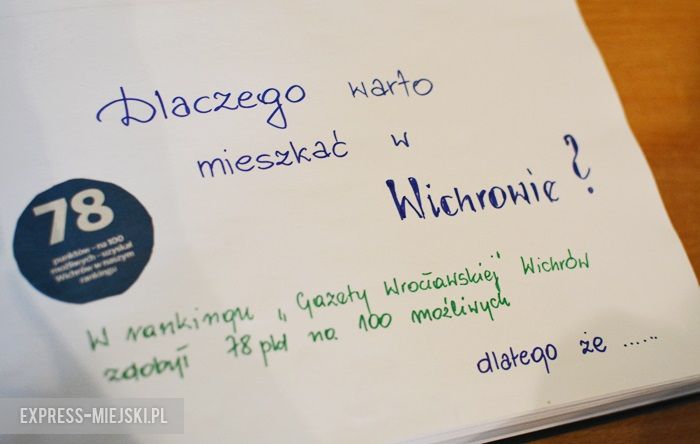 Dlaczego warto
mieszkać w
Wichrowie?
78
punktów - na 100
możliwych - uzyskał
Wichrów w naszym
rankingu
W rankingu „Gazety Wrocławskiej" Wichrów
zdobył 78 pkt na 100 możliwych
dlatego że ......
EXPRESS-MIEJSKI.PL